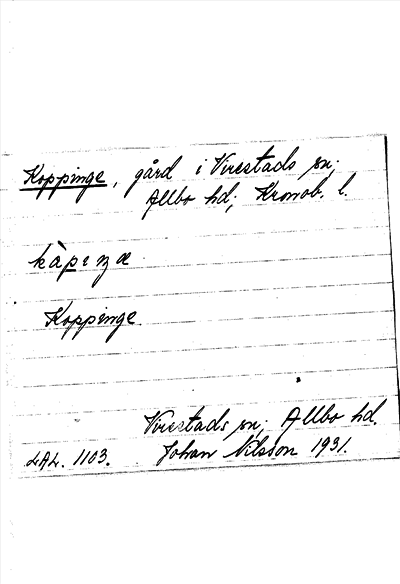 Koppinge, gård i Virestads sn.
Allbo hd; Kronob. l.
kàpiŋæ
Koppinge
Virestads sn; Allbo hd.
LAL. 1103. Johan Nilsson 1931.